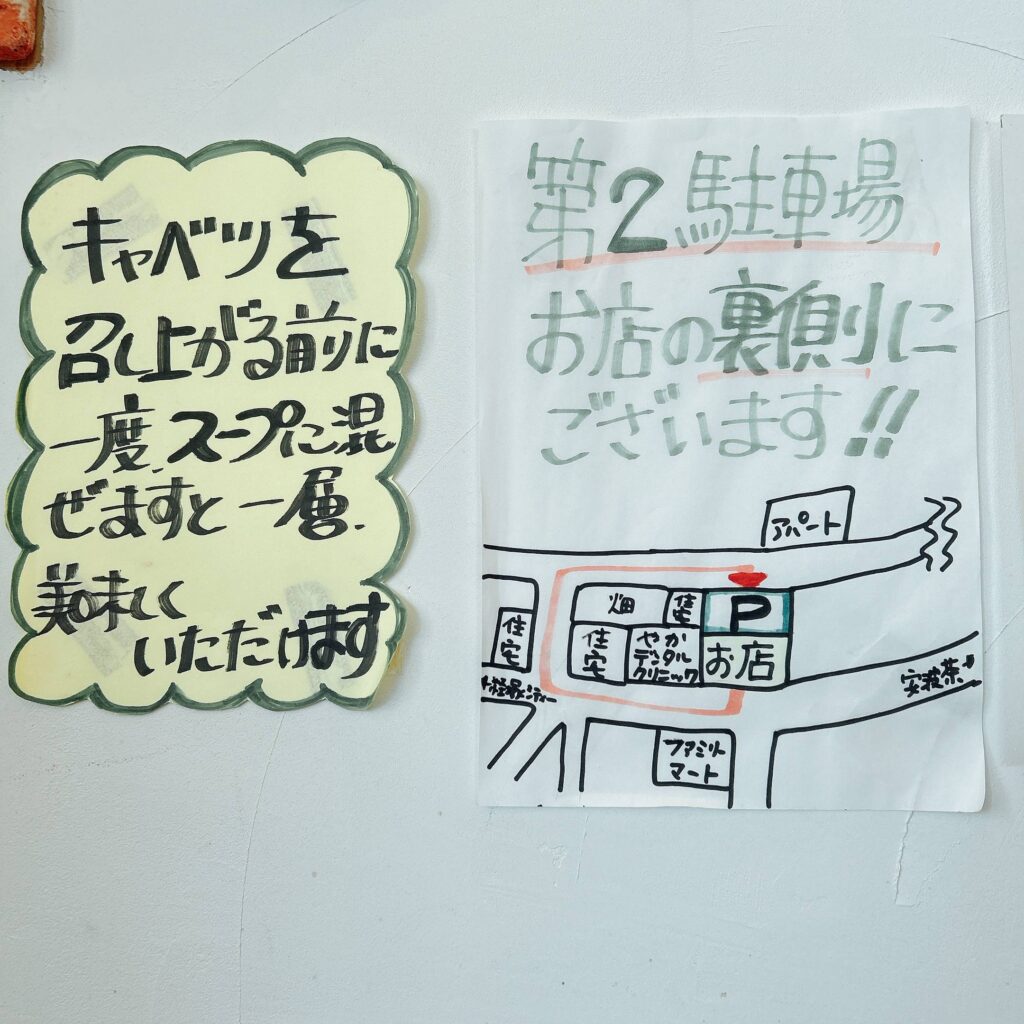 キャベツを
召し上がる前に
一度、スープに混
ぜますと一層、
美味しく
いただけます
第2駐車場
お店の裏側に
ございます!!
アパート
畑
住宅
P
住宅
住宅
やか
デンタル
クリニック
お店
ファミリー
マート